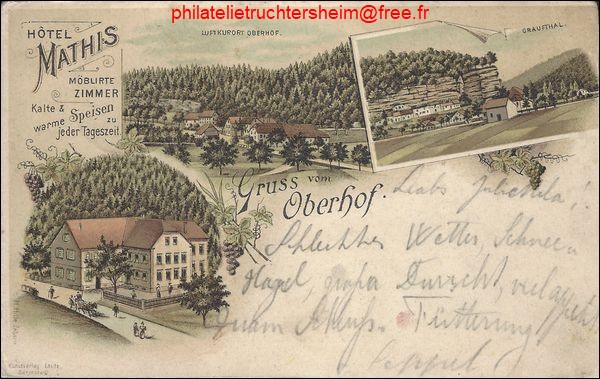 philatelietruchtersheim@free.fr
HÔTEL
MATHIS
MÖBLIRTE
ZIMMER
Kalte &
warme Speisen zu
jeder Tageszeit.
LUFTKURORT OBERHOF.
GRAUFTHAL.
Gruss vom
Oberhof.
Schlechtes Wetter, Schnee
Hagel, großer Durscht, viel
Fütterung
Seppel